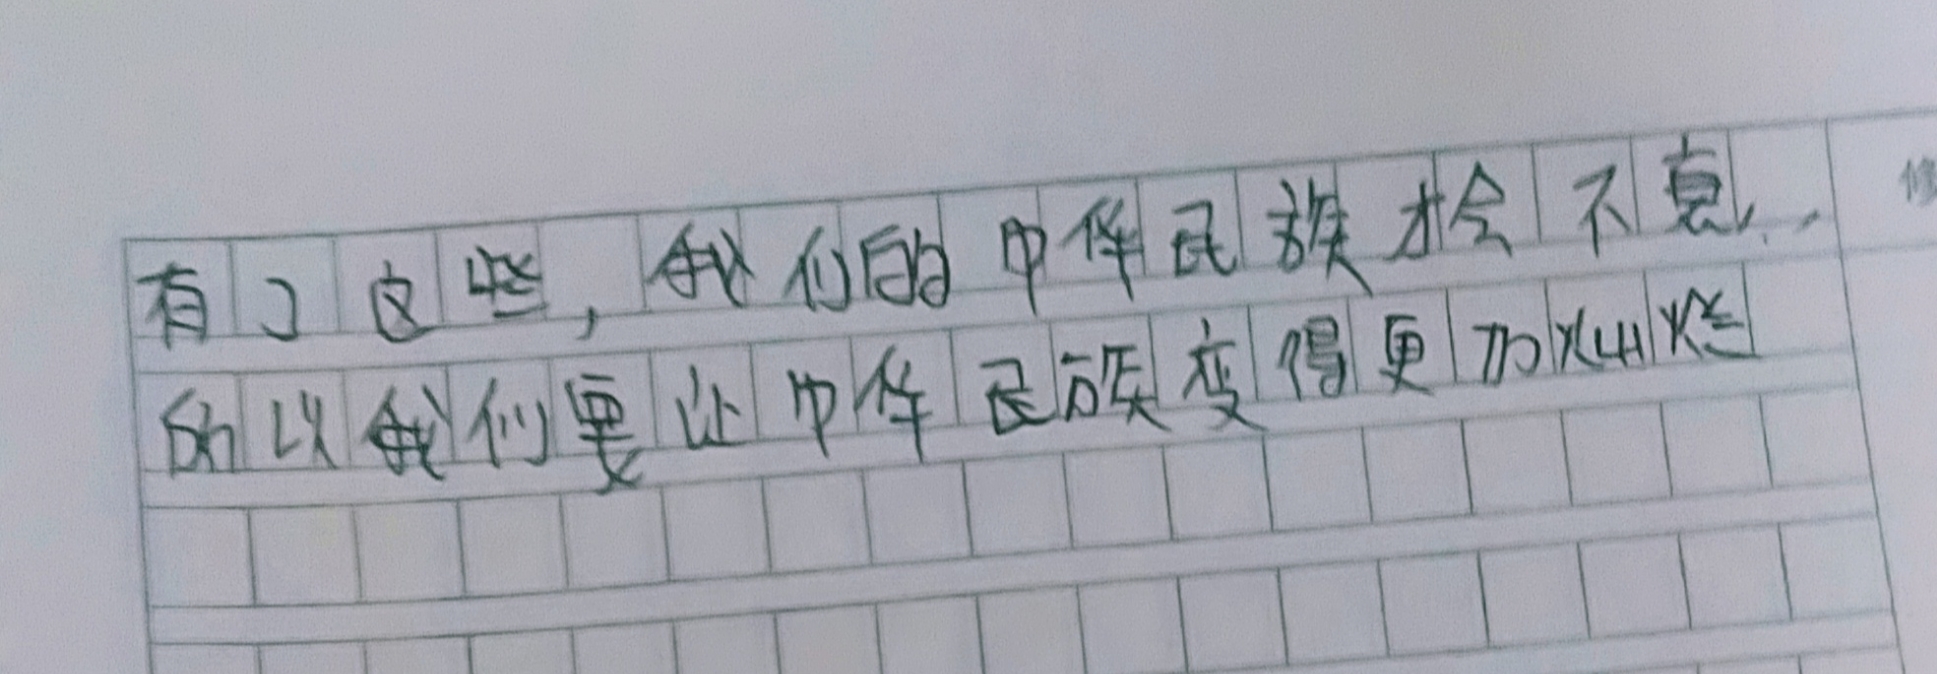 有了这些，我们的中华民族才会不息，
所以我们要让中华民族变得更加灿烂